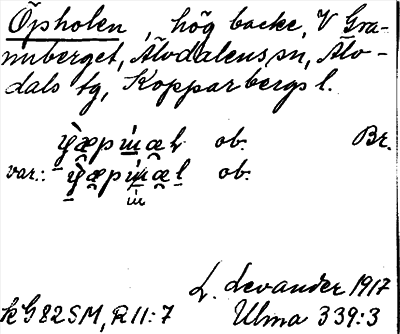 Öpholen, hög backe, V Gra-
nuberget, Älvdalens sn, Älv-
dals tg, Kopparbergs l.
ob. Br.
var.: ob.
L. Levander 1917
kG82SM, R11:7 Ulma 339:3